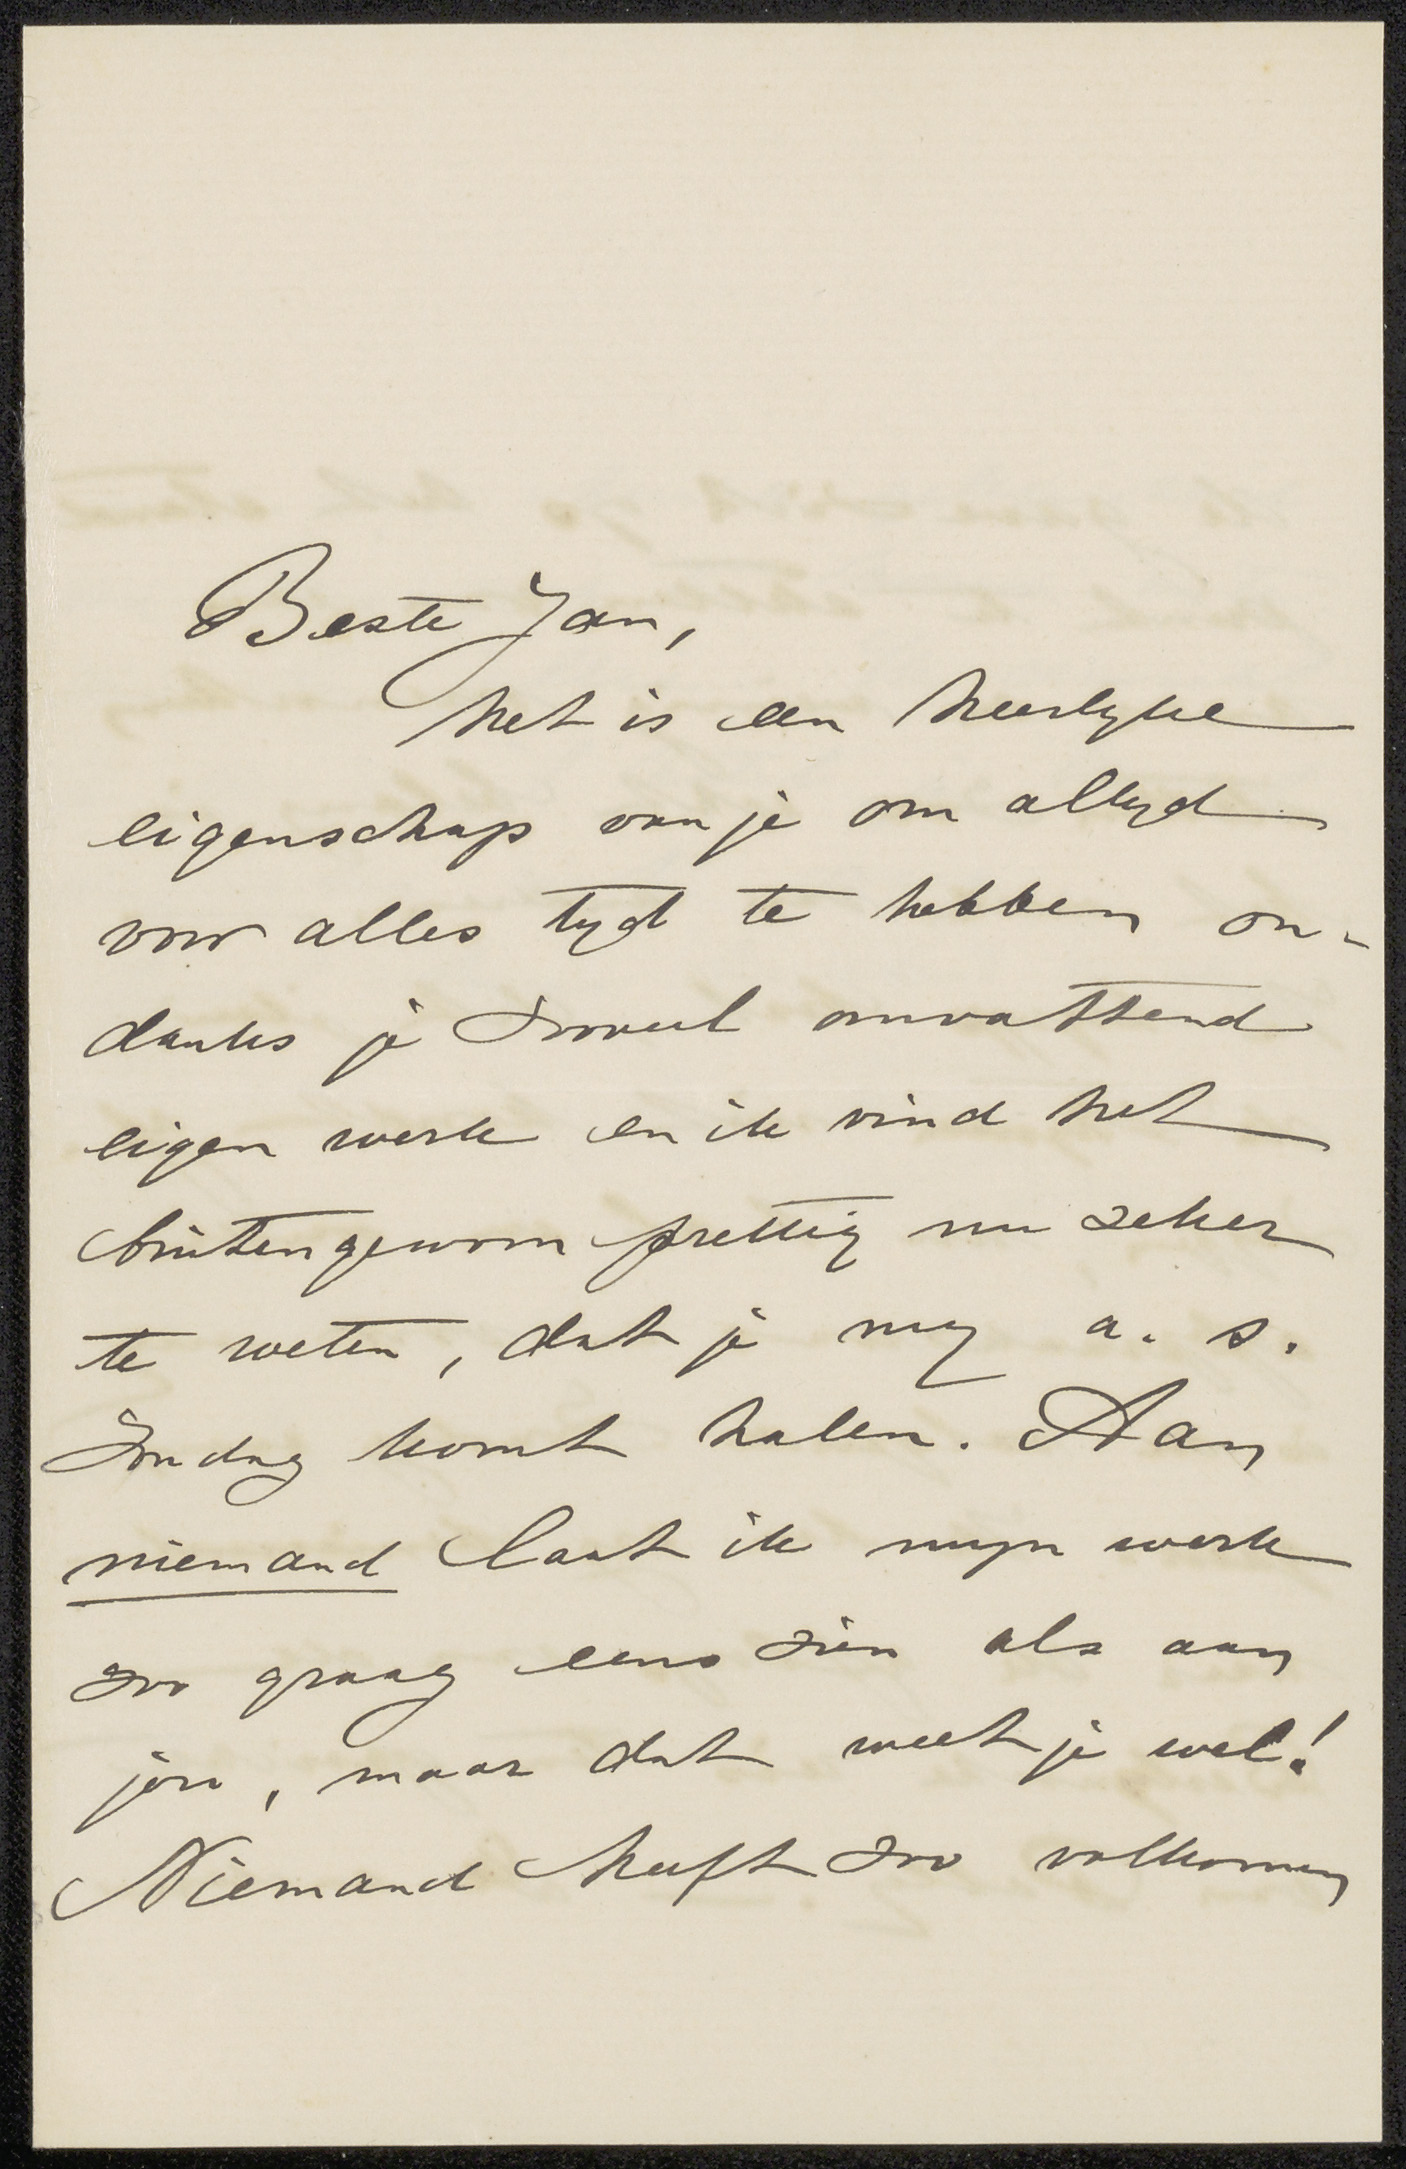 Beste Jan,
het is een heerlyke
eigenschap van je om altyd
voor alles tyd te hebben on-
danks je zooveel omvattend
eigen werk en ik vind het
buitengewoon prettig nu zeker
te weten, dat je my a. s.
Zondag komt halen. Aan
niemand laat ik myn werk
zoo graag eens zien als aan
jou, maar dat weet je wel!
Niemand heeft zoo volkomen